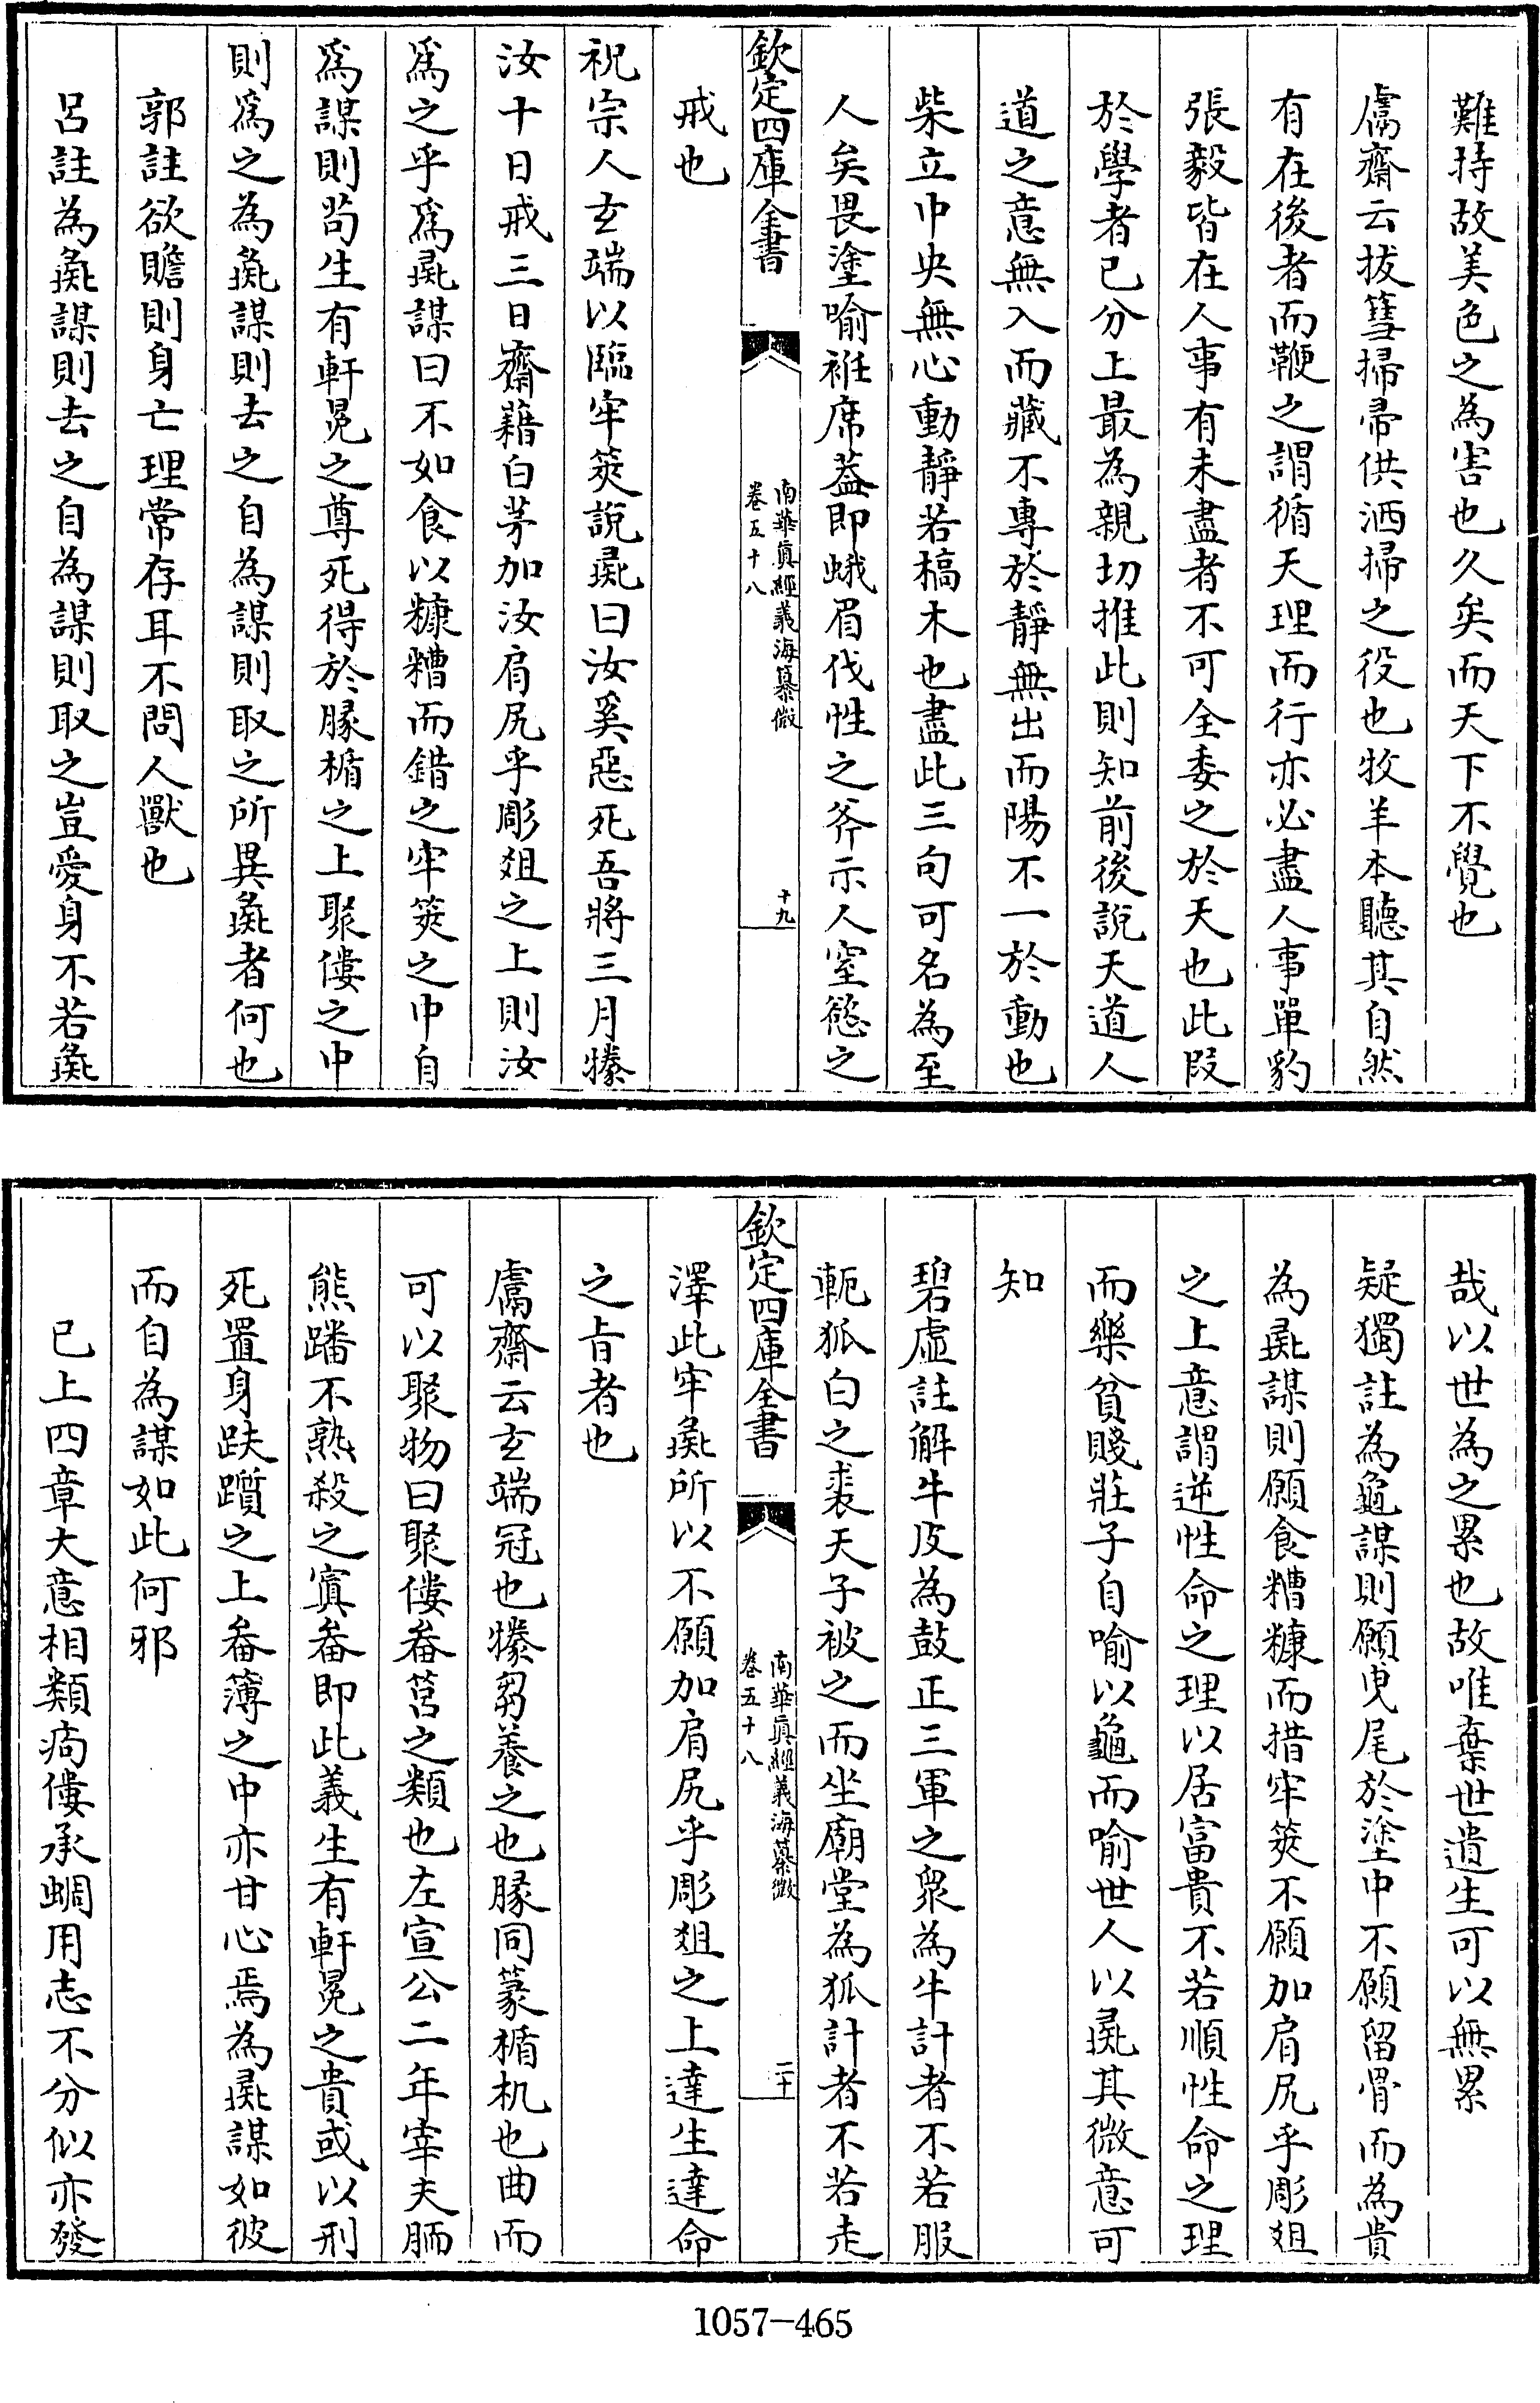 難持故美色之為害也久矣而天下不覺也
鬳齋云拔篲掃帚供洒掃之役也牧羊本聽其自然
有在後者而鞭之謂循天理而行亦必盡人事單豹
張毅皆在人事有未盡者不可全委之於天也此段
於學者己分上最為親切推此則知前後說天道人
道之意無入而藏不專於靜無出而陽不一於動也
柴立中央無心動靜若槁木也盡此三句可名為至
人矣畏塗喻袵席葢即蛾眉伐性之斧示人窒慾之
戒也
欽定四庫全書
南華真經義海纂微
卷五十八
十九
祝宗人玄端以臨牢筴說彘曰汝奚惡死吾將三月㹖
汝十日戒三日齋藉白茅加汝肩尻乎彫俎之上則汝
為之乎為彘謀曰不如食以糠糟而錯之牢筴之中自
為謀則苟生有軒冕之尊死得於腞楯之上聚僂之中
則為之為彘謀則去之自為謀則取之所異彘者何也
郭註欲贍則身亡理常存耳不問人獸也
呂註為彘謀則去之自為謀則取之豈愛身不若彘
哉以世為之累也故唯棄世遺生可以無累
疑獨註為龜謀則願曳尾於塗中不願留骨而為貴
為彘謀則願食糟糠而措牢筴不願加肩尻乎彫俎
之上意謂逆性命之理以居富貴不若順性命之理
而樂貧賤莊子自喻以龜而喻世人以彘其微意可
知
碧虛註解牛皮為鼓正三軍之衆為牛計者不若服
軛狐白之裘天子被之而坐廟堂為狐計者不若走
欽定四庫全書
南華真經義海纂微
卷五十八
二十
澤此牢彘所以不願加肩尻乎彫俎之上達生達命
之旨者也
鬳齋云玄端冠也㹖芻養之也腞同篆楯机也曲而
可以聚物曰聚僂畚筥之類也左宣公二年宰夫胹
熊蹯不熟殺之寘畚即此義生有軒冕之貴或以刑
死置身趺躓之上畚簿之中亦甘心焉為彘謀如彼
而自為謀如此何邪
已上四章大意相類痀僂承蜩用志不分似亦發
1057-465